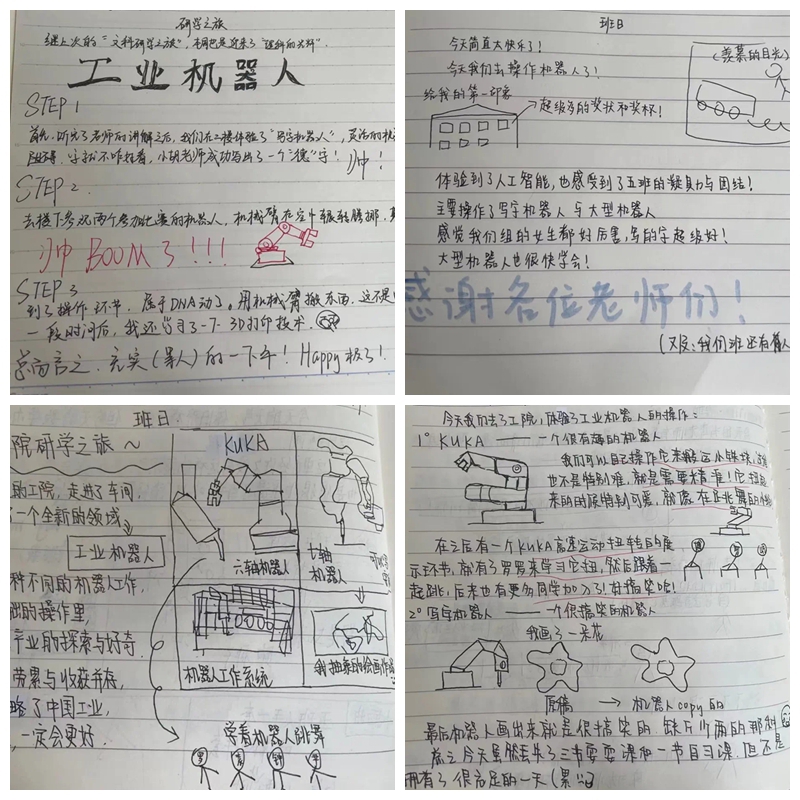 研学之旅
继上次的“文科研学之旅”，本周也是迎来了“理科的关怀”.
工业机器人
STEP 1
首先，听完了老师的讲解之后，我们在二楼体验了“写字机器人”，灵活的机
字就不咋我看，小胡老师成功写出了一个“德”字！帅！
STEP 2
去楼下参观两个参加比赛的机器人，机械臂在空中辗转腾挪.
帅 BOOM 了!!!
STEP 3
到了操作环节，属于DNA动了。用机械臂搬东西，这不是
一段时间后，我还学习了一下3D打印技术.
总而言之，充实（累人）的一下午！Happy 极了！
班日
今天简直太快乐了！
今天我们去操作机器人了！
给我的第一印象
超级多的奖状和奖杯！
（羡慕的目光）
体验到了人工智能，也感受到了五班的凝聚力与团结！
主要操作了写字机器人与大型机器人
感觉我们组的女生都好厉害，写的字超级好！
大型机器人也很快学会！
感谢各位老师们！
班日：
院研学之旅～
的工院，走进了车间，
一个全新的领域
工业机器人
种不同的机器人工作，
础的操作里，
工业的探索与好奇.
劳累与收获并存，
略了中国工业，
一定会更好.
KUKA
六轴机器人
七轴
机器人
机器人工作系统
我抽象的绘画作品
学着机器人跳舞
今天我们去了工院，体验了工业机器人的操作：
1° KUKA —— 一个很有趣的机器人
我们可以自己操作它来搬运小铁块，
也不是特别难，就是需要精准！它扭起
来的时候特别可爱，就像在跳舞的
在之后有一个KUKA高速运动扭转的展
示环节，就有了罗罗来学习它扭，然后跟着一
起跳，后来也有更多同学加入了！好搞笑哈！
2° 写字机器人 —— 一个很搞笑的机器人
我画了一朵花
原稿 → 机器人copy的
最后机器人画出来就是很搞笑的，缺斤少两的那种
总之今天虽然丢失了三节耍耍课和一节自习课，但还是
拥有了很充足的一天（累